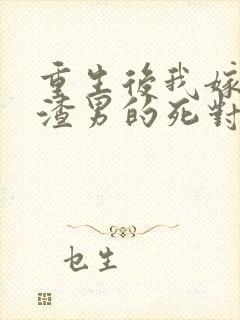 重生後我嫁
渣男的死對
乜生